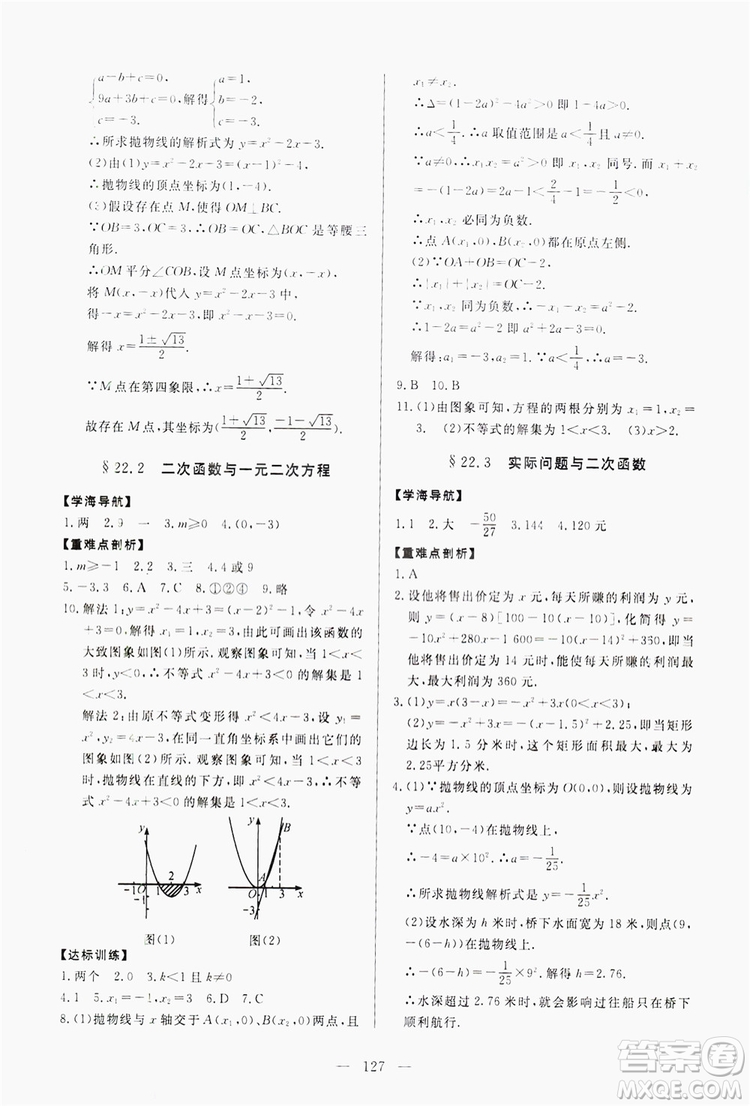 a-b+c=0,
9a+3b+c=0, 解得
c=-3.
a=1,
b=-2,
c=-3.
∴所求抛物线的解析式为 x²-2x-3.
(2)由(1)y=x²-2x-3,
∴抛物线的顶点坐标为(1,-4).
(3)假设存在点 M,使得 OM⊥BC.
∵OB=3,OC=3,△BOC 是等腰三
角形.
∴OM 平分∠COB,设 M 点坐标为(x,-x).
将 M(x,-x)代入 y=x²-2x-3,
得-x=x²-2x-3,即 x²-x-3=0,
解得 x=(1±√13)/2.
∵M 点在第四象限,∴x=(1+√13)/2.
故存在 M 点,其坐标为((1+√13)/2,(-1-√13)/2).
§22.2 二次函数与一元二次方程
【学海导航】
1.两 2.9 一 3.m>0 4.(0,-3)
【重难点剖析】
1.m≥-1 2.2 3.三 4.4或9
5.-3.3 6.A 7.C 8.①②④ 9.略
10.解法 1:y=x²-4x+3=(x-2)²-1,令 x²-
4x+3=0,解得 x₁=1,x₂=3,由此可画出该函数的
大致图象如图(1)所示.观察图象可知当 1<x<3
时,x²-4x+3<0,∴不等式 x²-4x+3<0 的解集是
1<x<3.
解法 2:由原不等式变形得 x²<4x-3,设 y₁=
x²,y₂=4x-3,在同一直角坐标系中画出它们的
图象如图(2)所示.观察图象可知:当 1<x<3
时,抛物线在直线的下方,即 x²<4x-3,∴不
等式 x²-4x+3<0 的解集是 1<x<3.
y
-1 O 1 2 3 x
-1
图(1)
y
B
A
O 1 3 x
-3
图(2)
【达标训练】
1.两个 2.0 3.k<1 且 k≠0
4.1 5.x₁=-1,x₂=3 6.D 7.C
8.(1)抛物线与 x 轴交于 A(x₁,0)、B(x₂,0)两点,且
x₁≠x₂.
∴Δ=(1-2a)²-4a²>0 即 1-4a>0.
∴a<1/4 ∴a 取值范围是 a<1/4 且 a≠0.
∵a≠0,∴x₁·x₂=a²>0 即 x₁、x₂ 同号.而 x₁+x₂
=-(1-2a)=2a-1<2/4-1=-1/2<0.
∴x₁、x₂ 必同为负数.
∴点 A(x₁,0),B(x₂,0)都在原点左侧.
(2)∵OA+OB=OC-2,
∴|x₁|+|x₂|=a²-2.
∵x₁、x₂ 同为负数,∴-x₁-x₂=a²-2.
∴1-2a=a²-2,∴a²+2a-3=0.
解得:a₁=1,a₂=-3.∵a<1/4 且 a≠0,∴a=-3.
9.B 10.B
11.(1)由图象可知,方程的两根分别为 x₁=1,x₂=
3. (2)不等式的解集为 1<x<3. (3)x>2.
§22.3 实际问题与二次函数
【学海导航】
1.1 2.大 -50/27 3.144 4.120 元
【重难点剖析】
1.A
2.设他将售出价定为 x 元,每天所赚的利润为 y 元,
则 y=(x-8)[100-10(x-10)],化简得 y=
-10x²+280x-1 600=-10(x-14)²+360.
∴他将售出价定为 14 元时,每天所赚的利润最大,
最大利润为 360 元.
3.(1)y=x(3-x)=-x²+3x(0<x<3).
(2)y=-x²+3x=-(x-1.5)²+2.25,即当矩形
边长为 1.5米时,矩形面积最大,最大面积为
2.25平方米.
4.(1)∵抛物线的顶点坐标为O(0,0),则设抛物线为
y=ax².
∵点(10,-4)在抛物线上,
∴-4=a×10²,∴a=-1/25.
∴所求抛物线解析式为 y=-1/25x².
(2)设水深为 h 米时,桥下水面宽为 18 米,则点(9,
-(6-h))在抛物线上.
∴-(6-h)=-1/25×9². 解得 h=2.76.
∴水深超过 2.76 米时,就会影响过往船只在桥下
顺利航行.
— 127 —
答案圈
MXQE.COM